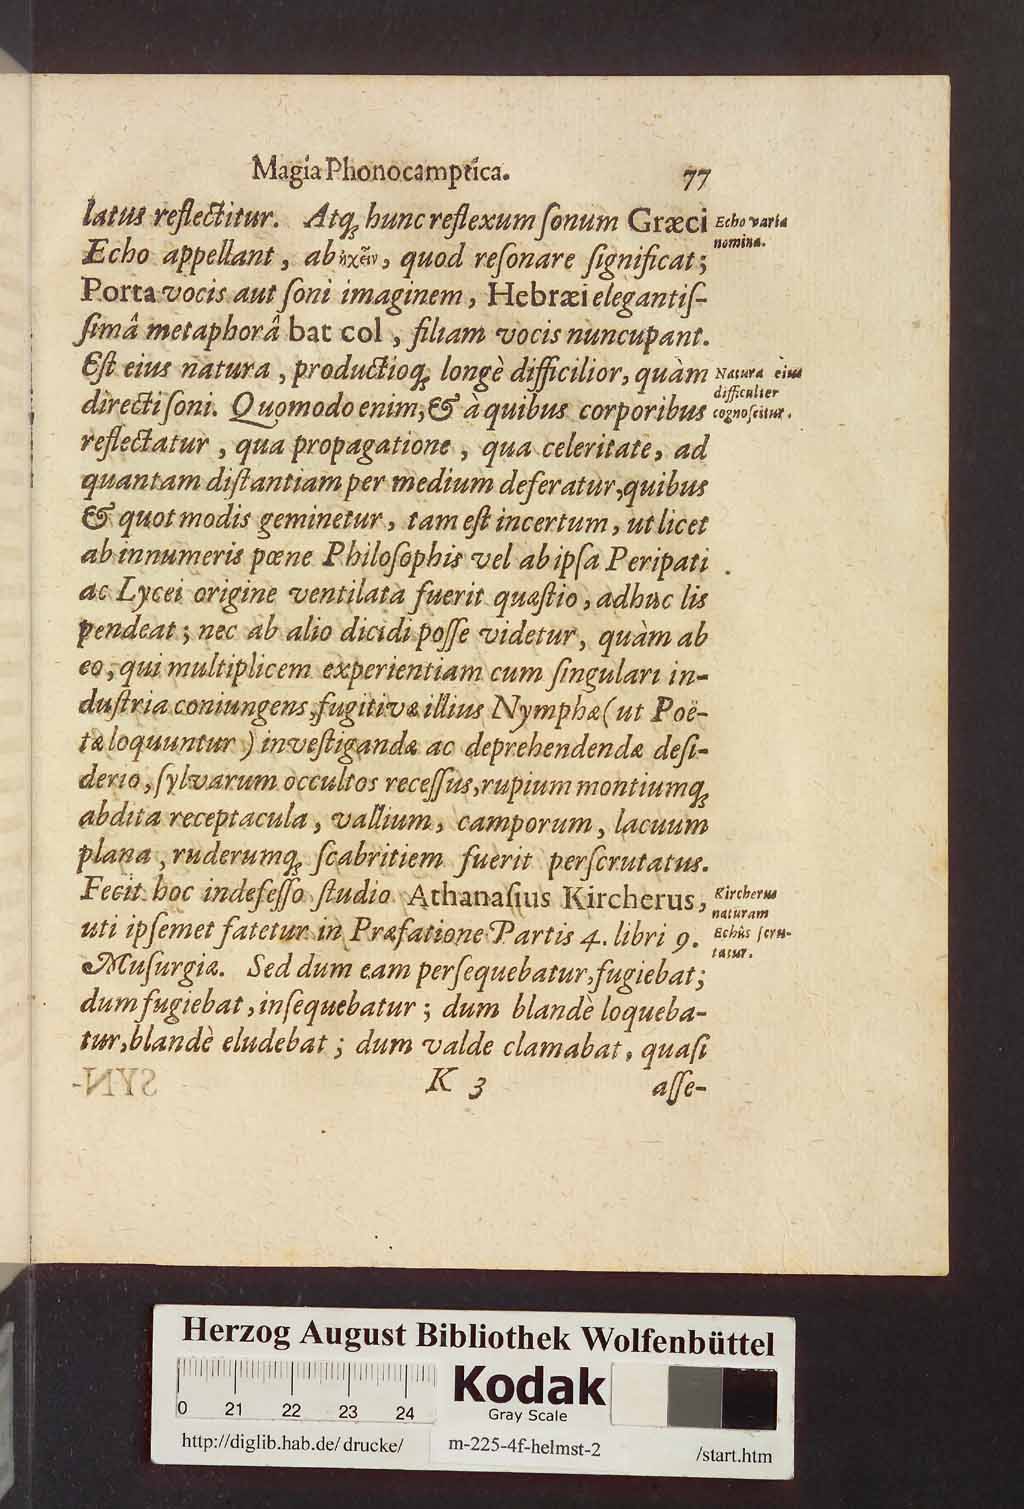 Magia Phonocamptica. 77
latus reflectitur. Atq́; hunc reflexum ſonum Græci
Echo appellant, ab ἠχεῖν, quod reſonare ſignificat;
Porta vocis aut ſoni imaginem, Hebræi elegantiſ-
ſimâ metaphorâ bat col, filiam vocis nuncupant.
Eſt eius natura, productioq́; longè difficilior, quàm
directi ſoni. Quomodo enim, & à quibus corporibus
reflectatur, qua propagatione, qua celeritate, ad
quantam diſtantiam per medium deferatur, quibus
& quot modis geminetur, tam eſt incertum, ut licet
ab innumeris pœne Philoſophis vel ab ipſa Peripati
ac Lycei origine ventilata fuerit quæſtio, adhuc lis
pendeat; nec ab alio dicidi poſſe videtur, quàm ab
eo, qui multiplicem experientiam cum ſingulari in-
duſtria coniungens, fugitivæ illius Nymphæ (ut Poë-
tæ loquuntur) inveſtigandæ ac deprehendendæ deſi-
derio, ſylvarum occultos receſſus, rupium montiumq́;
abdita receptacula, vallium, camporum, lacuum
plana, ruderumq́; ſcabritiem fuerit perſcrutatus.
Fecit hoc indefeſſo ſtudio Athanaſius Kircherus,
uti ipſemet fatetur in Præfatione Partis 4. libri 9.
Muſurgiæ. Sed dum eam perſequebatur, fugiebat;
dum fugiebat, inſequebatur; dum blandè loqueba-
tur, blandè eludebat; dum valde clamabat, quaſi
K 3 aſſe-
Echo varia
nomina.
Natura eius
difficulter
cognoſcitur.
Kircherus
naturam
Echûs ſcru-
tatur.
SYN-
Herzog August Bibliothek Wolfenbüttel
0 21 22 23 24
Kodak
Gray Scale
http://diglib.hab.de/drucke/ m-225-4f-helmst-2 /start.htm